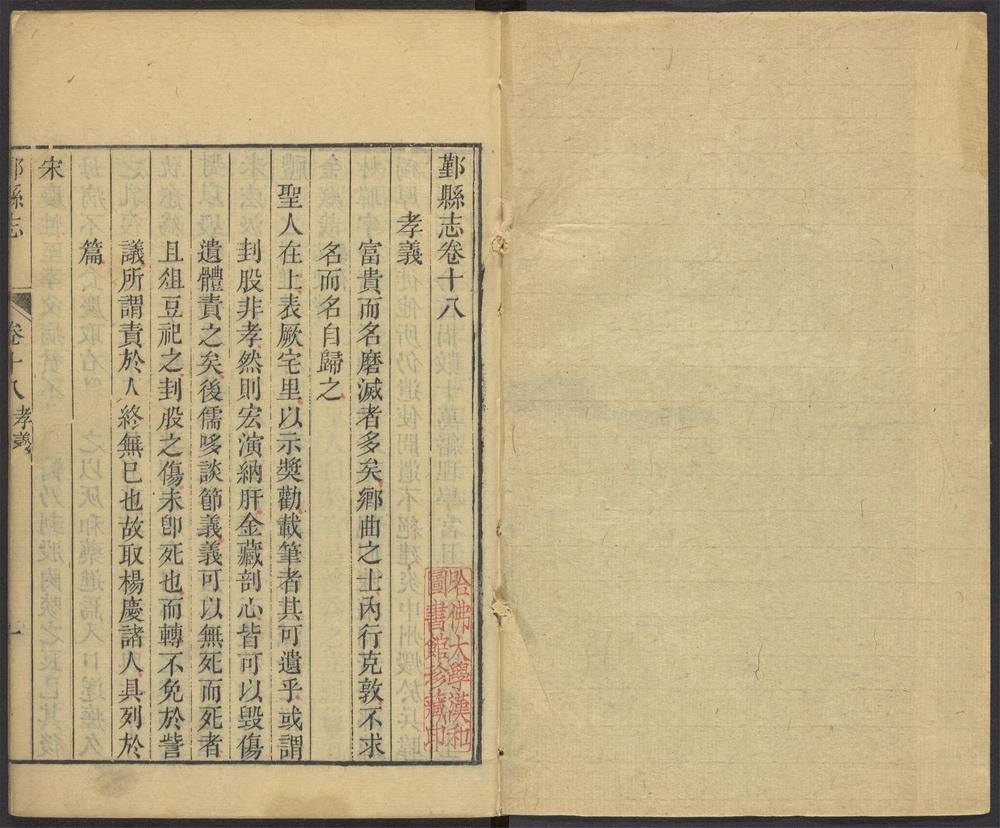 鄞縣志卷十八
孝義
富貴而名磨滅者多矣鄉曲之士內行克敦不求
名而名自歸之
聖人在上表厥宅里以示獎勸載筆者其可遺乎或謂
刲股非孝然則宏演納肝金藏剖心皆可以毀傷
遺體責之矣後儒哆談節義義可以無死而死者
且俎豆祀之刲股之傷未卽死也而轉不免於訾
議所謂責於人終無已也故取楊慶諸人具列於
篇
宋
鄞縣志
卷十八
孝義
一
哈佛大學漢和
圖書館珍藏印